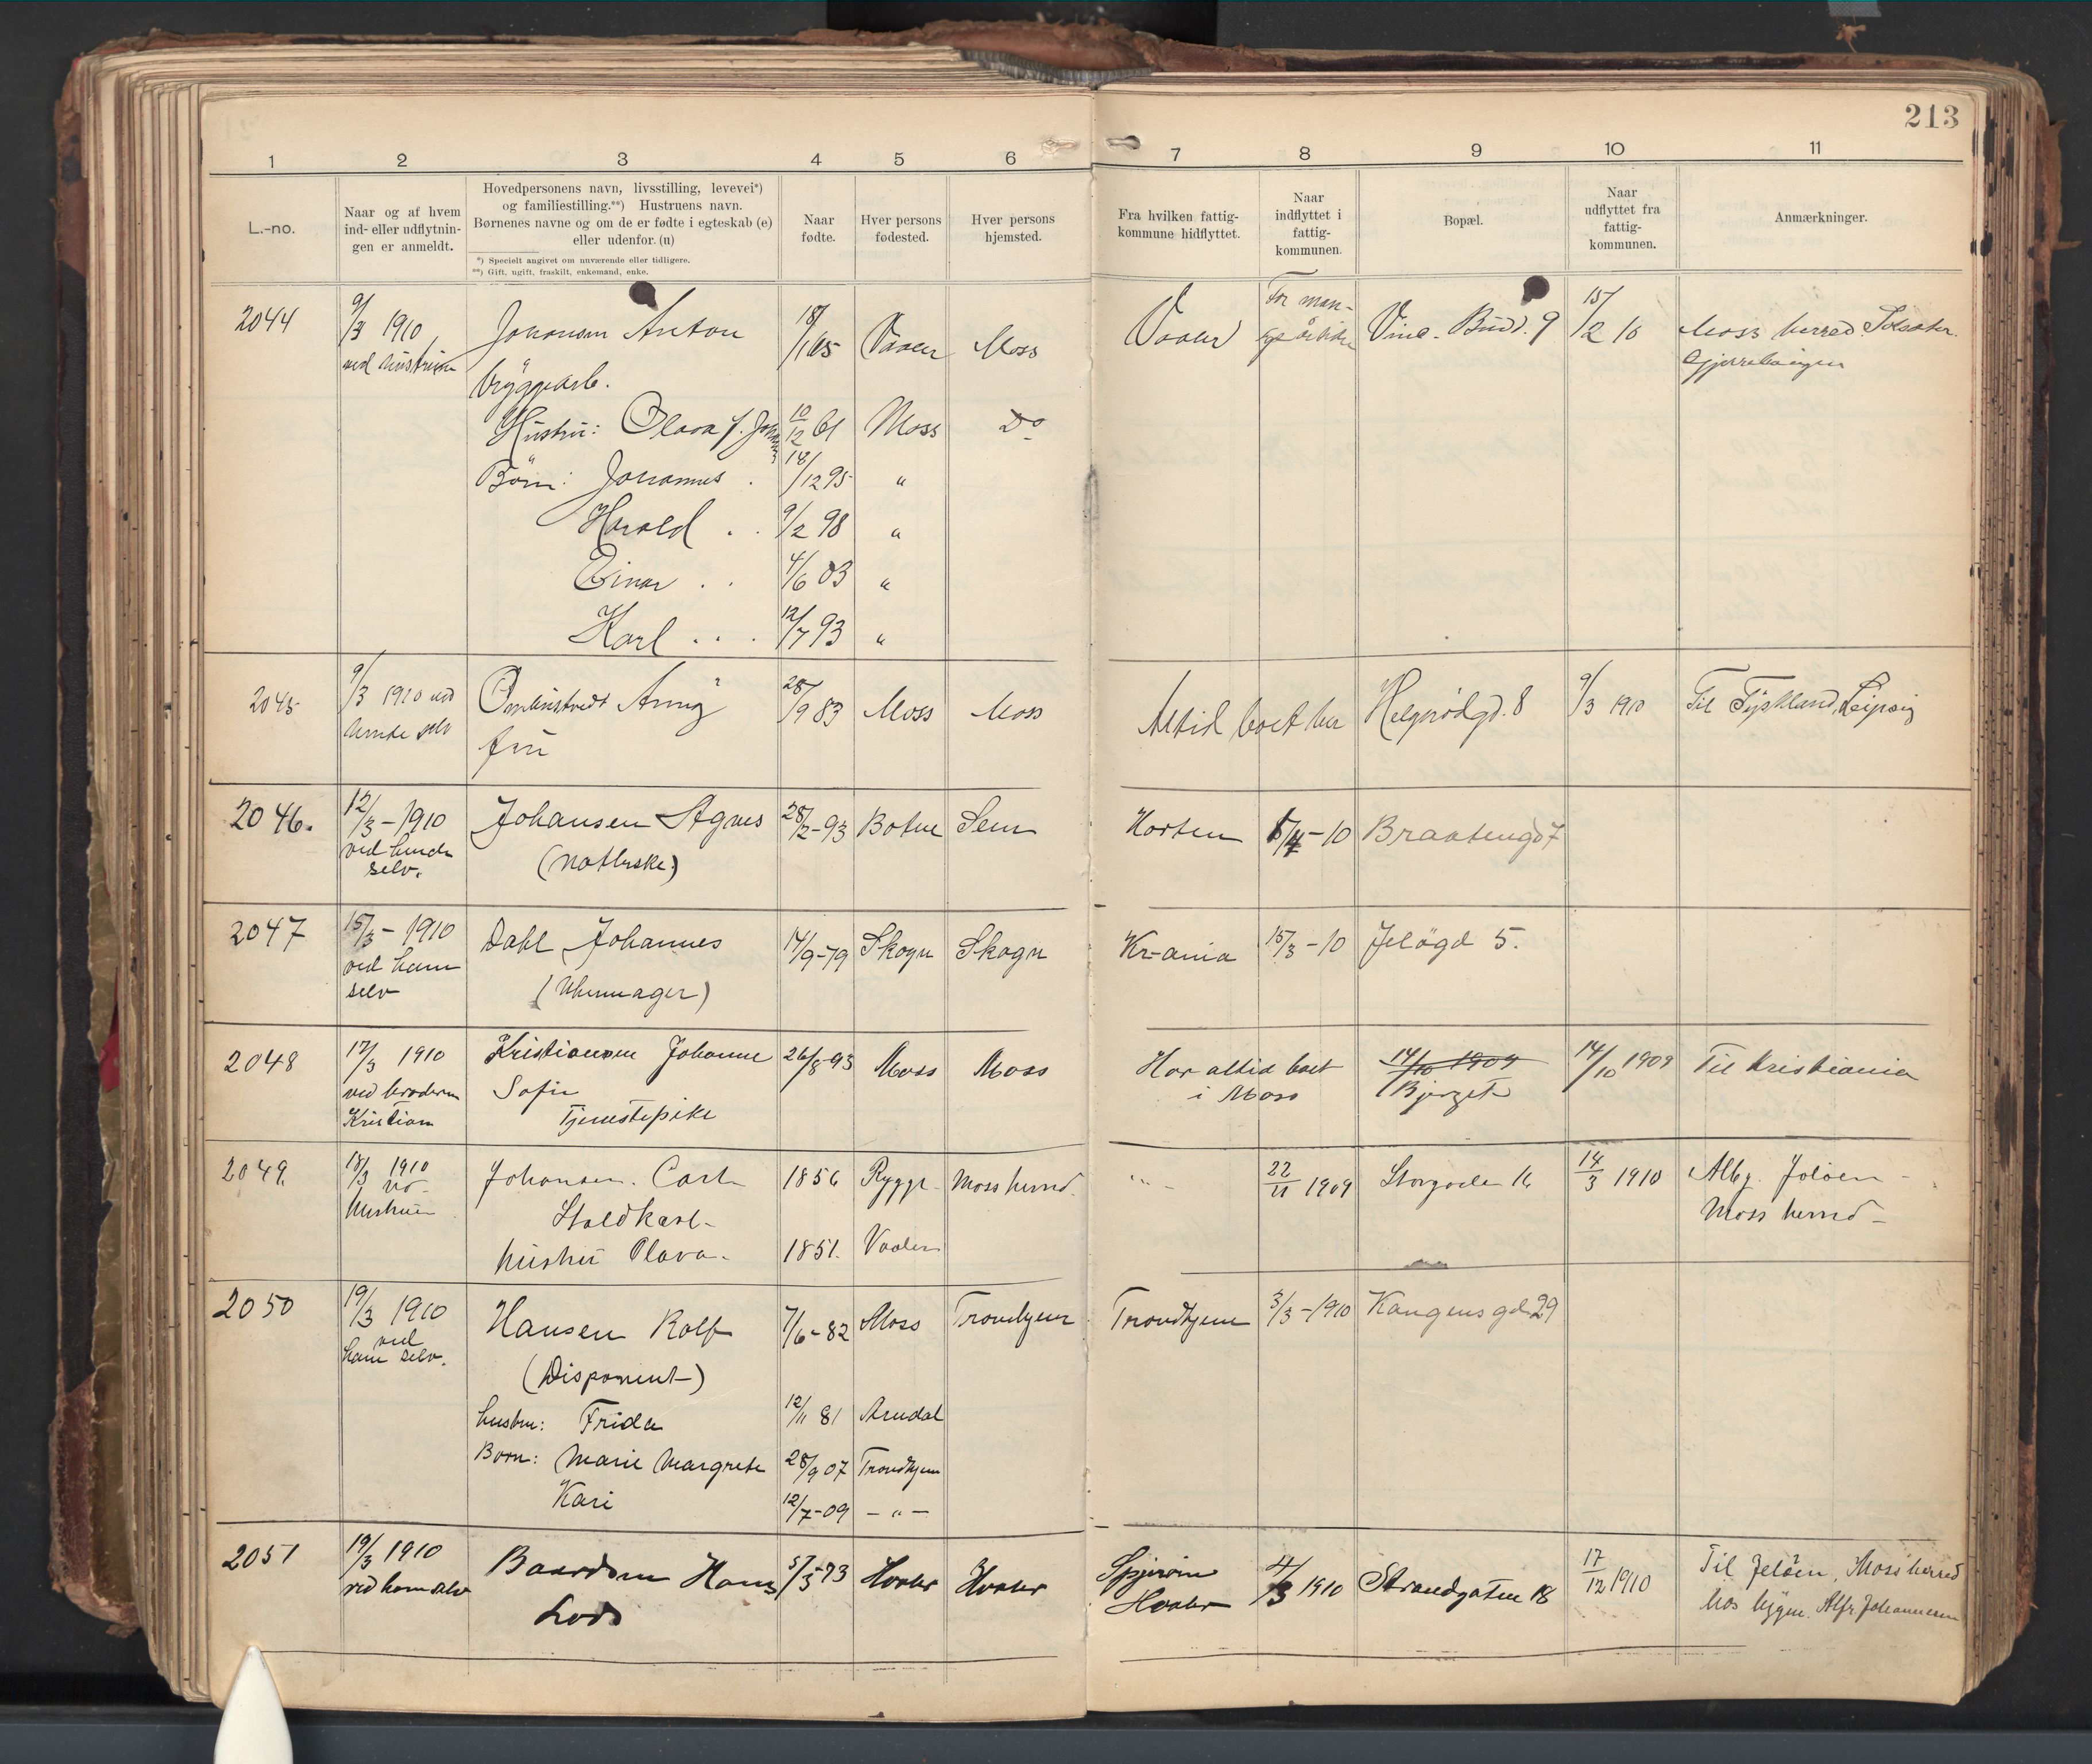 213
1 2 3 4 5 6 7 8 9 10 11
L.-no.
Naar og af hvem
ind- eller udflytnin-
gen er anmeldt.
Hovedpersonens navn, livsstilling, levevei*)
og familiestilling.**) Hustruens navn.
Børnenes navne og om de er fødte i egteskab (e)
eller udenfor. (u)
*) Specielt angivet om nuværende eller tidligere.
**) Gift, ugift, fraskilt, enkemand, enke.
Naar
fødte.
Hver persons
fødested.
Hver persons
hjemsted.
Fra hvilken fattig-
kommune hidflyttet.
Naar
indflyttet i
fattig-
kommunen.
Bopæl.
Naar
udflyttet fra
fattig-
kommunen.
Anmærkninger.
2044 9/3 1910 Johansen Anton 18/1 65 Vaaler Moss Vaaler For man- 9 15/2 10 Moss herred
ved hustruen
bryggearb.
Hustru: Olava f. 10/12 61 Moss Do
Börn: Johannes . 18/12 95 "
Harald . . 9/2 98 "
Einar . . 4/6 03 "
Karl . . . 12/7 93 "
2045 9/3 1910 ved Anny 28/9 83 Moss Moss Altid boet her Helgerödgd. 8 9/3 1910 Til Tÿskland, Leipsig
hende selv
2046. 12/3 - 1910 Johansen Agnes 28/2-93 Botne Sem Horten -10
ved hende
selv.
2047 15/3 - 1910 Dahl Johannes 14/9-79 Skogn Skogn Kr-ania 15/3-10 Jelögd 5.
ved ham (Uhrmager)
selv
2048 17/3 1910 Kristiansen Johanne 26/8-93 Moss Moss Har altid boet 14/10 1909 14/10 1909 Til Kristiania
ved broderen Sofie i Moss Bjerget
Kristian Tjenestepike
2049. 18/3 1910 Johansen. Carl 1856 Rygge Moss herred. - " - 22/11 1909 Storgaden 16 14/3 1910 Alby. Jeløen -
ved Staldkarl- Moss herred -
hustruen
hustru Olava. 1851. Vaaler
2050 19/3 1910 Hansen Rolf 7/6-82 Moss Trondhjem Trondhjem 3/3-1910 Kongensgd 29
ved
ham selv. (Disponent)
hustru: Frida 12/11 81 Arendal
Born: Marie Margrete 28/9 07 Trondhjem
Kari 12/7-09 - " -
2051 19/3 1910 Hans 5/3-73 Hvaler Hvaler Spjæröen 4/3 1910 Strandgaten 18 17/12 1910 Til Jelöen, Moss herred
ved ham selv Lods Hvaler hos bÿgm. Alfr Johannesen